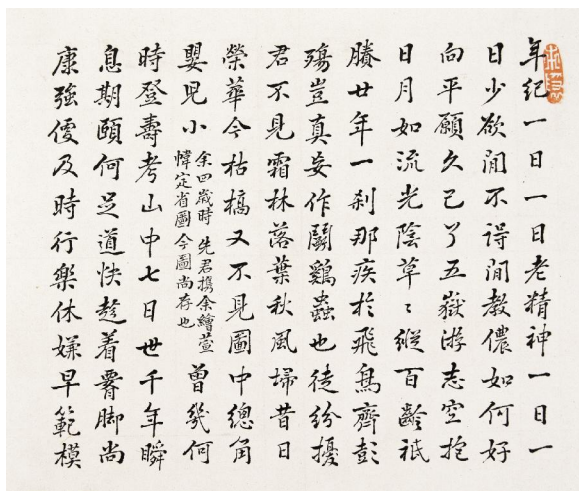 年紀一日一日老精神一日一
日少欲閒不得閒教儂如何好
向平願久已了五嶽游志空抱
日月如流光陰草〻縱百齡祇
賸廿年一刹那疾於飛鳥齊彭
殤豈真妄作鬭鷄蟲也徒紛擾
君不見霜林落葉秋風埽昔日
榮華今枯槁又不見圖中總角
嬰児小
余四歲時先君携余繪萱
幃定省圖今圖尚存也
曾幾何
時登壽考山中七日世千年瞬
息期頤何足道快趁着脚尚
康強及時行樂休嫌早範模